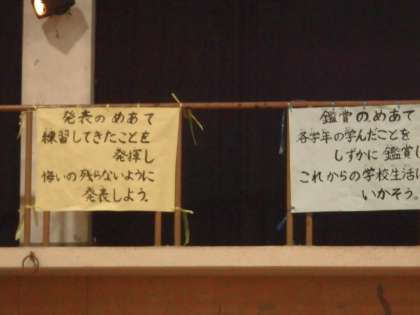 発表のめあて
練習してきたことを
発揮し
悔いの残らないように
発表しよう。
鑑賞のめあて
各学年の学んだことを
しずかに鑑賞し
これからの学校生活に
いかそう。